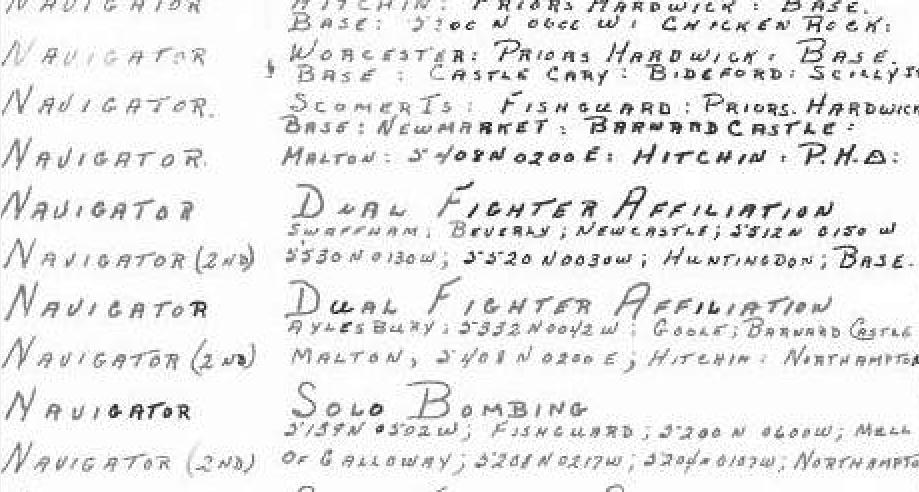 NAVIGATOR HITCHIN: PRIORS HARDWICK: BASE.
BASE: CHICKEN ROCK:
NAVIGATOR WORCESTER: PRIORS HARDWICK: BASE.
BASE: CASTLE CARY: BIDEFORD:
NAVIGATOR. FISHGUARD: PRIORS. HARDWICK
BASE: NEWMARKET: BARNARD CASTLE:
NAVIGATOR. MALTON: 5408N0200E: HITCHIN: P.H.D:
NAVIGATOR DUAL FIGHTER AFFILIATION
SWAFFHAM; BEVERLY; NEWCASTLE; 5512N 0150 W
NAVIGATOR (2ND) 5530N0130W; 5520N0030W; HUNTINGDON; BASE.
NAVIGATOR DUAL FIGHTER AFFILIATION
AYLESBURY; 5332N0042W; GOOLE; BARNARD CASTLE
NAVIGATOR (2ND) MALTON, 5408N0200E; HITCHIN: NORTHAMPTON
NAVIGATOR SOLO BOMBING
5139N 0502W; FISHGUARD; 5200N 0600W; MULL
NAVIGATOR (2ND) OF GALLOWAY; 5208N0217W; 5204N0107W; NORTHAMPTO